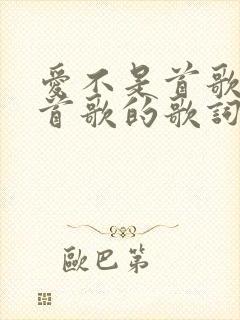 愛不是首歌
首歌的歌詞
歐巴第